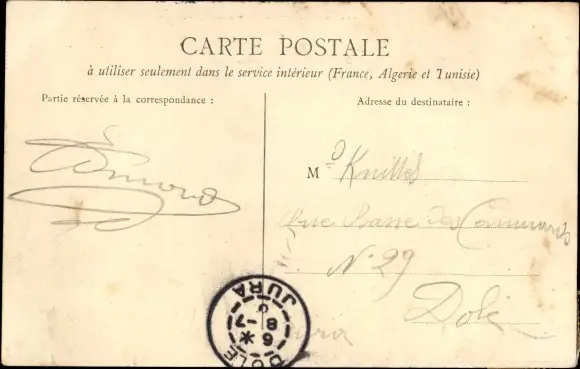 CARTE POSTALE
à utiliser seulement dans le service intérieur (France, Algerie et Tunisie)
Partie réservée à la correspondance :
Adresse du destinataire :
M
Rue Basse des
N° 29
Dole
DOLE
6 * 
8 -7
JURA